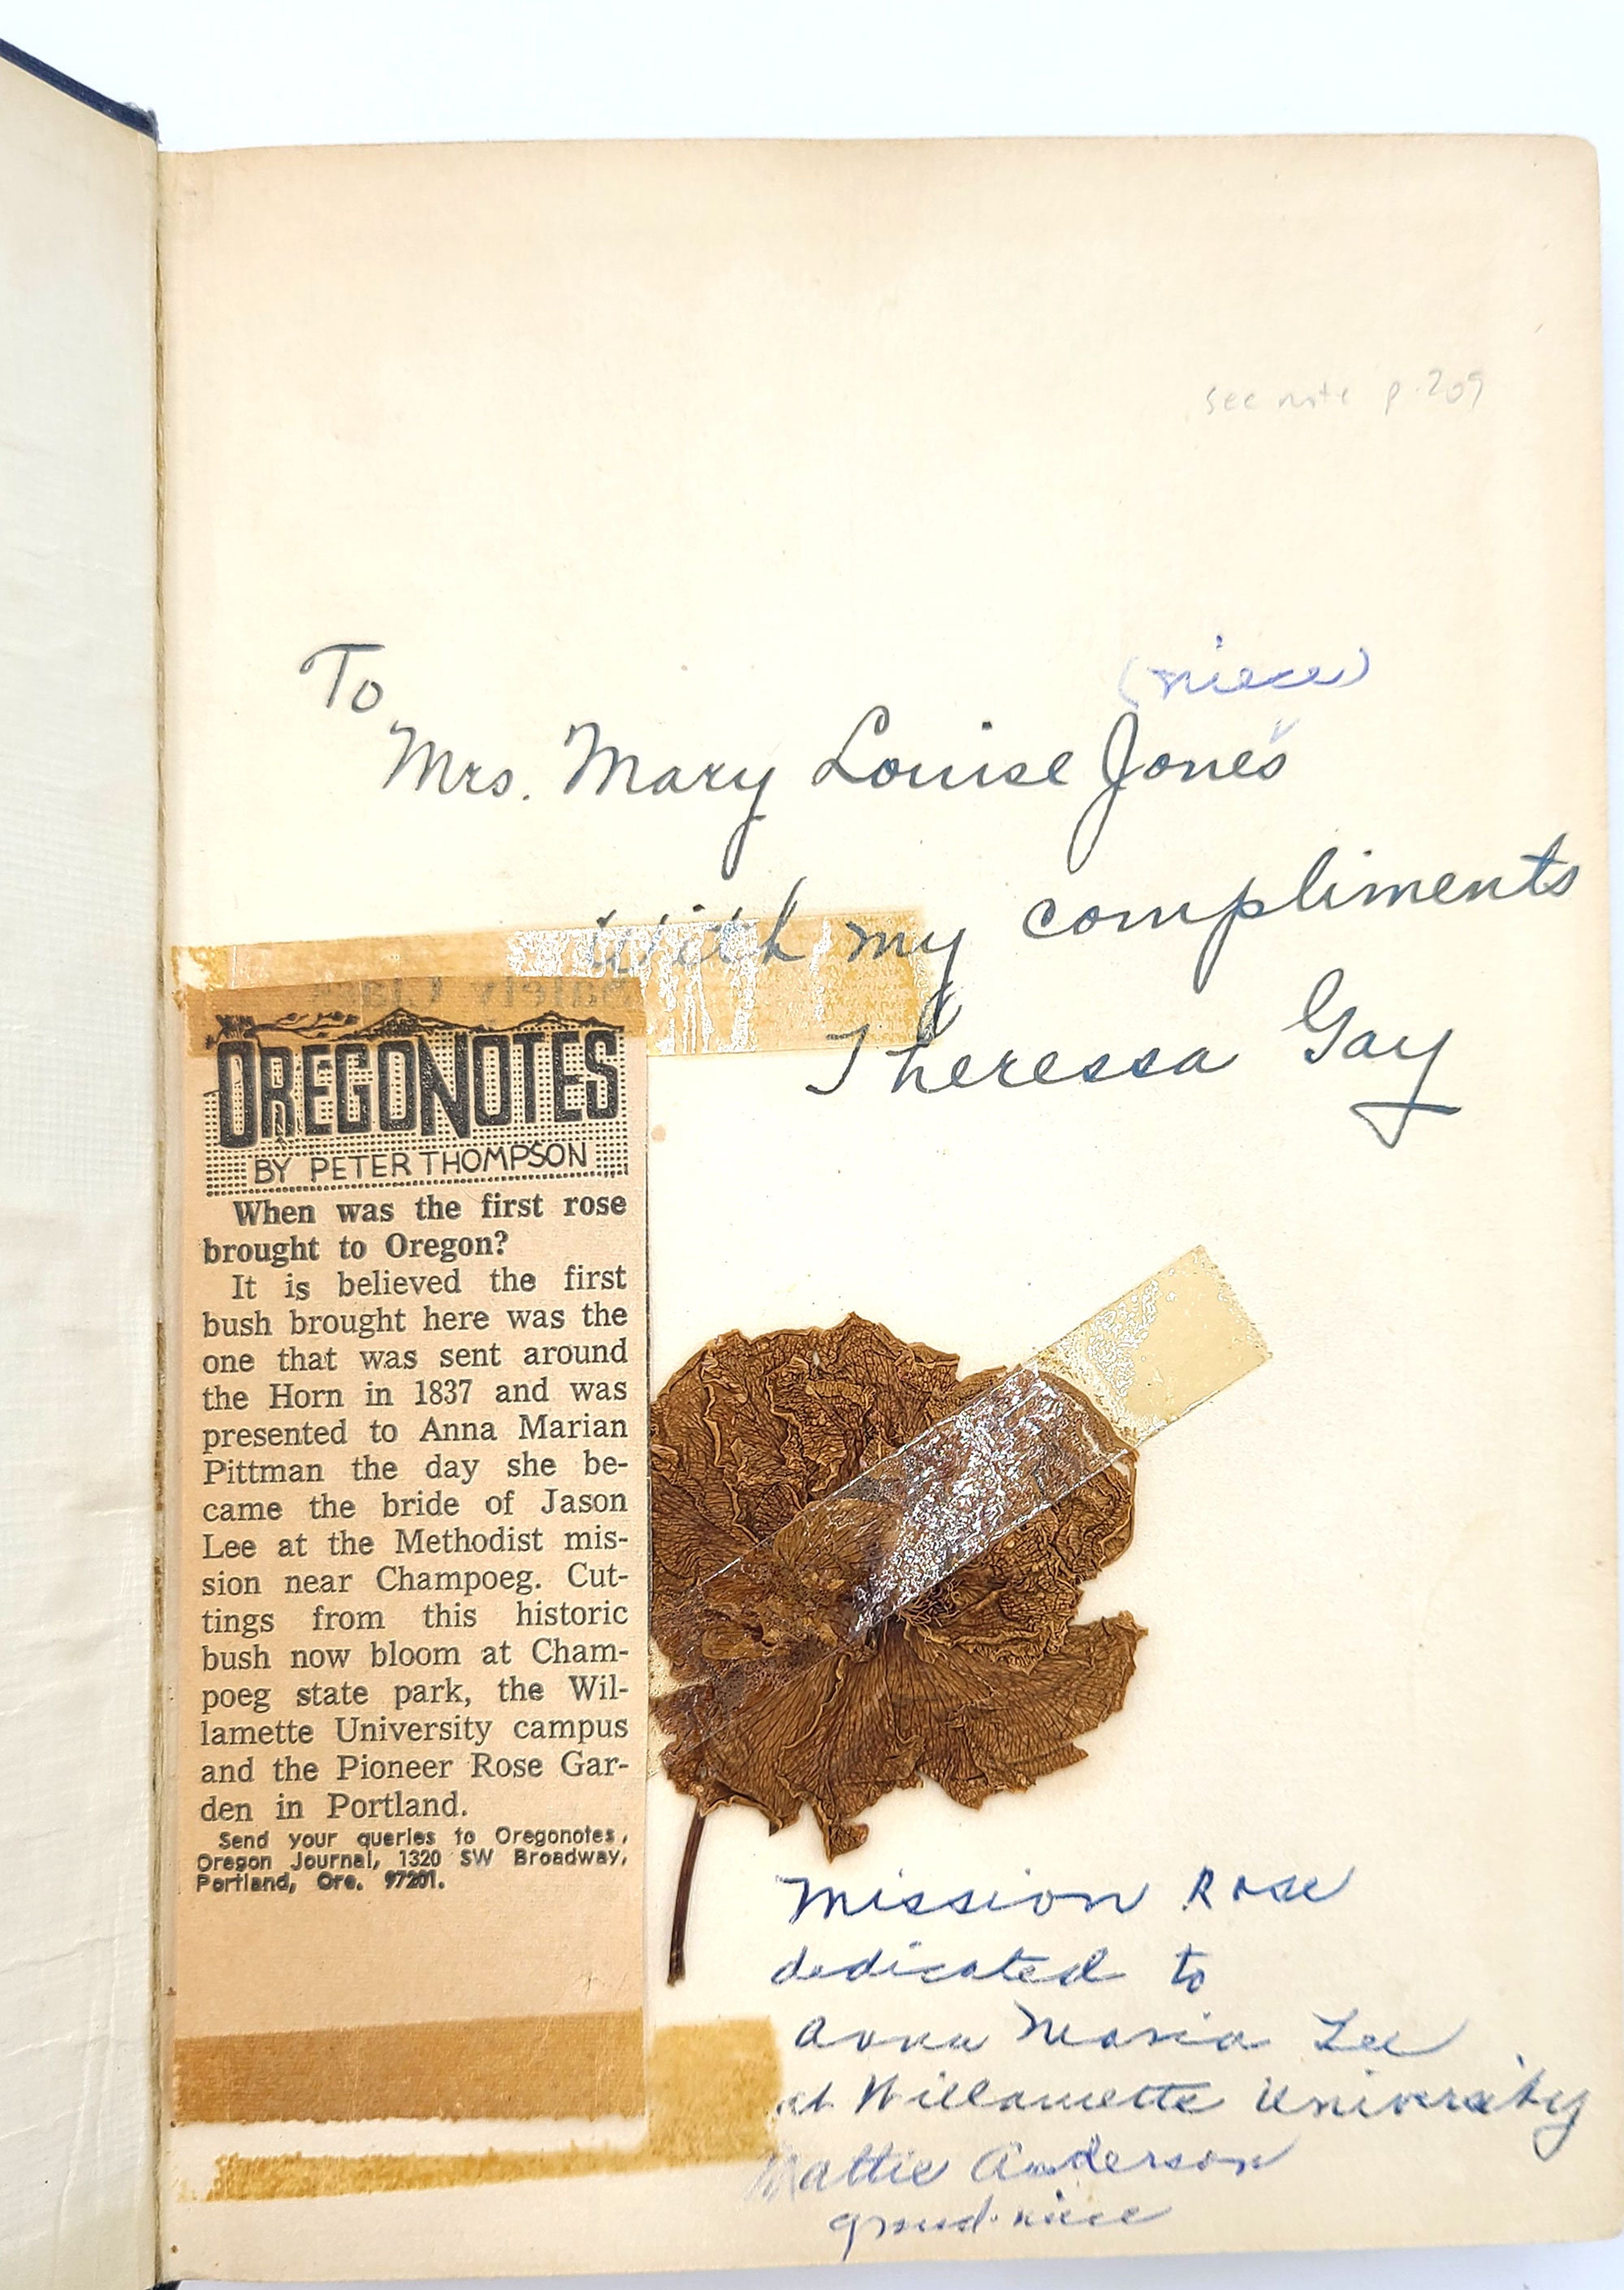 see note p. 209
To
(niece)
Mrs. Mary Louise Jones
with my compliments
Theressa Gay
OREGONOTES
BY PETER THOMPSON
When was the first rose
brought to Oregon?
It is believed the first
bush brought here was the
one that was sent around
the Horn in 1837 and was
presented to Anna Marian
Pittman the day she be-
came the bride of Jason
Lee at the Methodist mis-
sion near Champoeg. Cut-
tings from this historic
bush now bloom at Cham-
poeg state park, the Wil-
lamette University campus
and the Pioneer Rose Gar-
den in Portland.
Send your queries to Oregonotes,
Oregon Journal, 1320 SW Broadway,
Portland, Ore. 97201.
Mission Rose
dedicated to
Anna Maria Lee
at Willamette University
Mattie Anderson
grand-niece